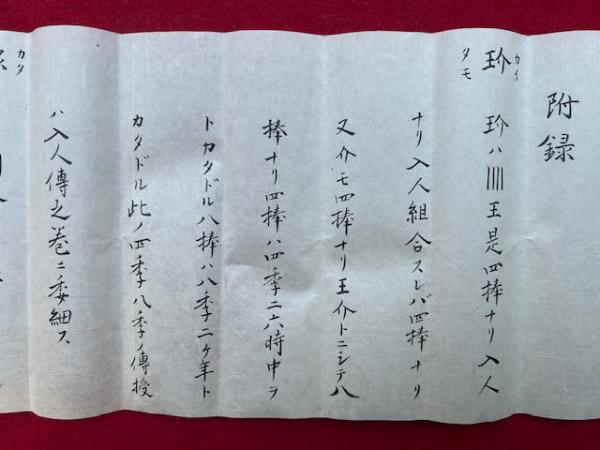 附録
玠 カイ タモ
玠ハ||||王是四捧ナリ入人
ナリ入人組合スレバ四捧ナリ
又介モ四捧ナリ王介トニシテ八
捧ナリ四捧ハ四季ニ六時中ヲ
トカタドル八捧ハ八季二ケ年ト
カタドル此ノ四季八季ノ傳授
ハ入人傳之巻ニ委細ス
カタ